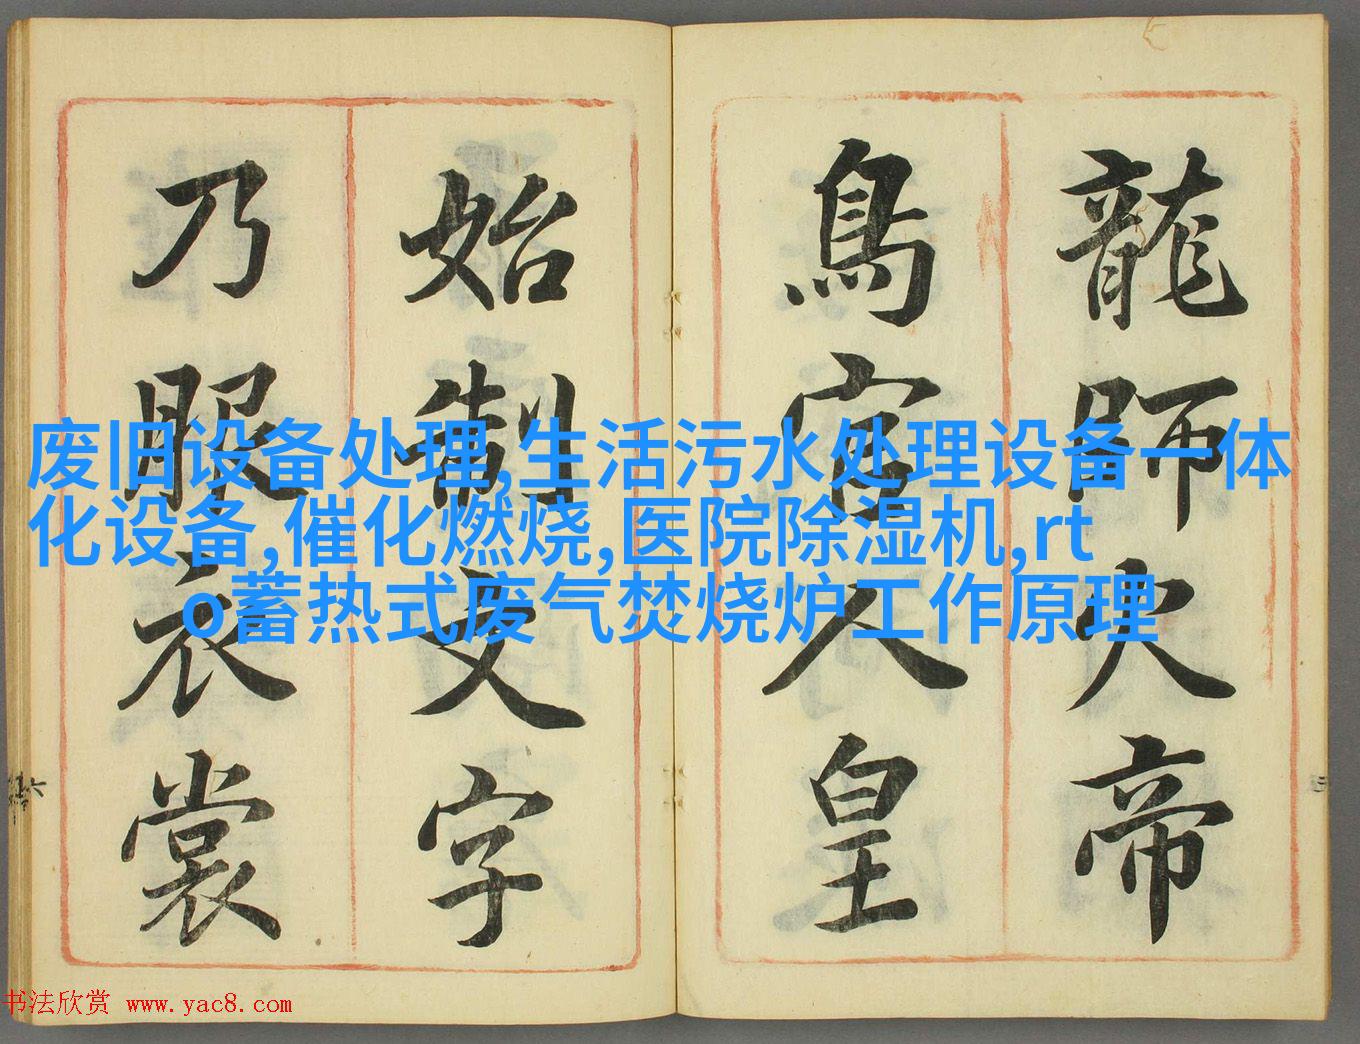 龍師火帝
鳥官人皇
始制文字
乃服衣裳
废旧设备处理,生活污水处理设备一体
化设备,催化燃烧,医院除湿机,rt
o蓄热式废气焚烧炉工作原理
书法欣赏 www.yac8.com